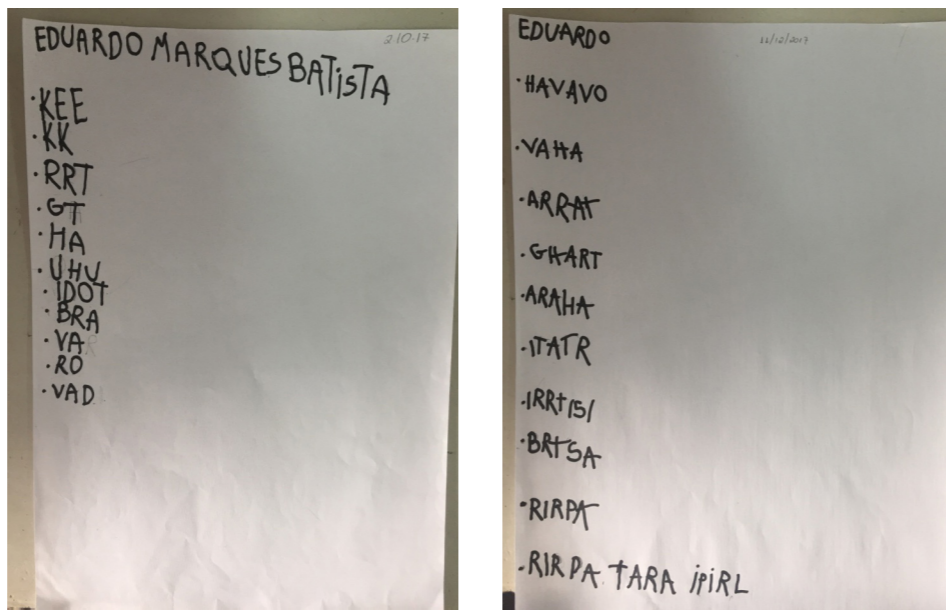 EDUARDO MARQUES BATISTA
2.10.17
·KEE
·KK
·RRT
·GT
·HA
·UHU
·IDOT
·BRA
·VA
·RO
·VAD
EDUARDO
11/12/2017
·HAVAVO
·VAHA
·ARRAT
·GHART
·ARAHA
·ITATR
·IRRTISI
·BRTSA
·RIRPA
·RIRPA TARA iPiRL